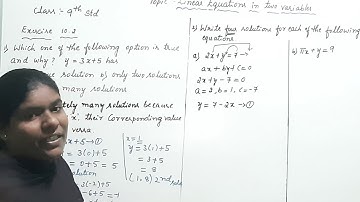 Class:- 9th std
Topic - Linear Equations in two variables
Exercise 10.2
1) Which one of the following option is true
and why? y = 3x+5 has
solution b) only two solutions
many solutions
many solutions because
x. their corresponding value
versa
x+5 → ①
= 3(0)+5
= 0+5 = 5
solution
x=1
y = 3(1)+5
= 3+5
= 8
(1, 8) 2nd
3) Write four solutions for each of the following
equations
a) 2x+y=7 →
ax + by + c = 0
2x+y-7=0
a=2, b=1, c=-7
y = 7-2x → ①
b) πx+y = 9